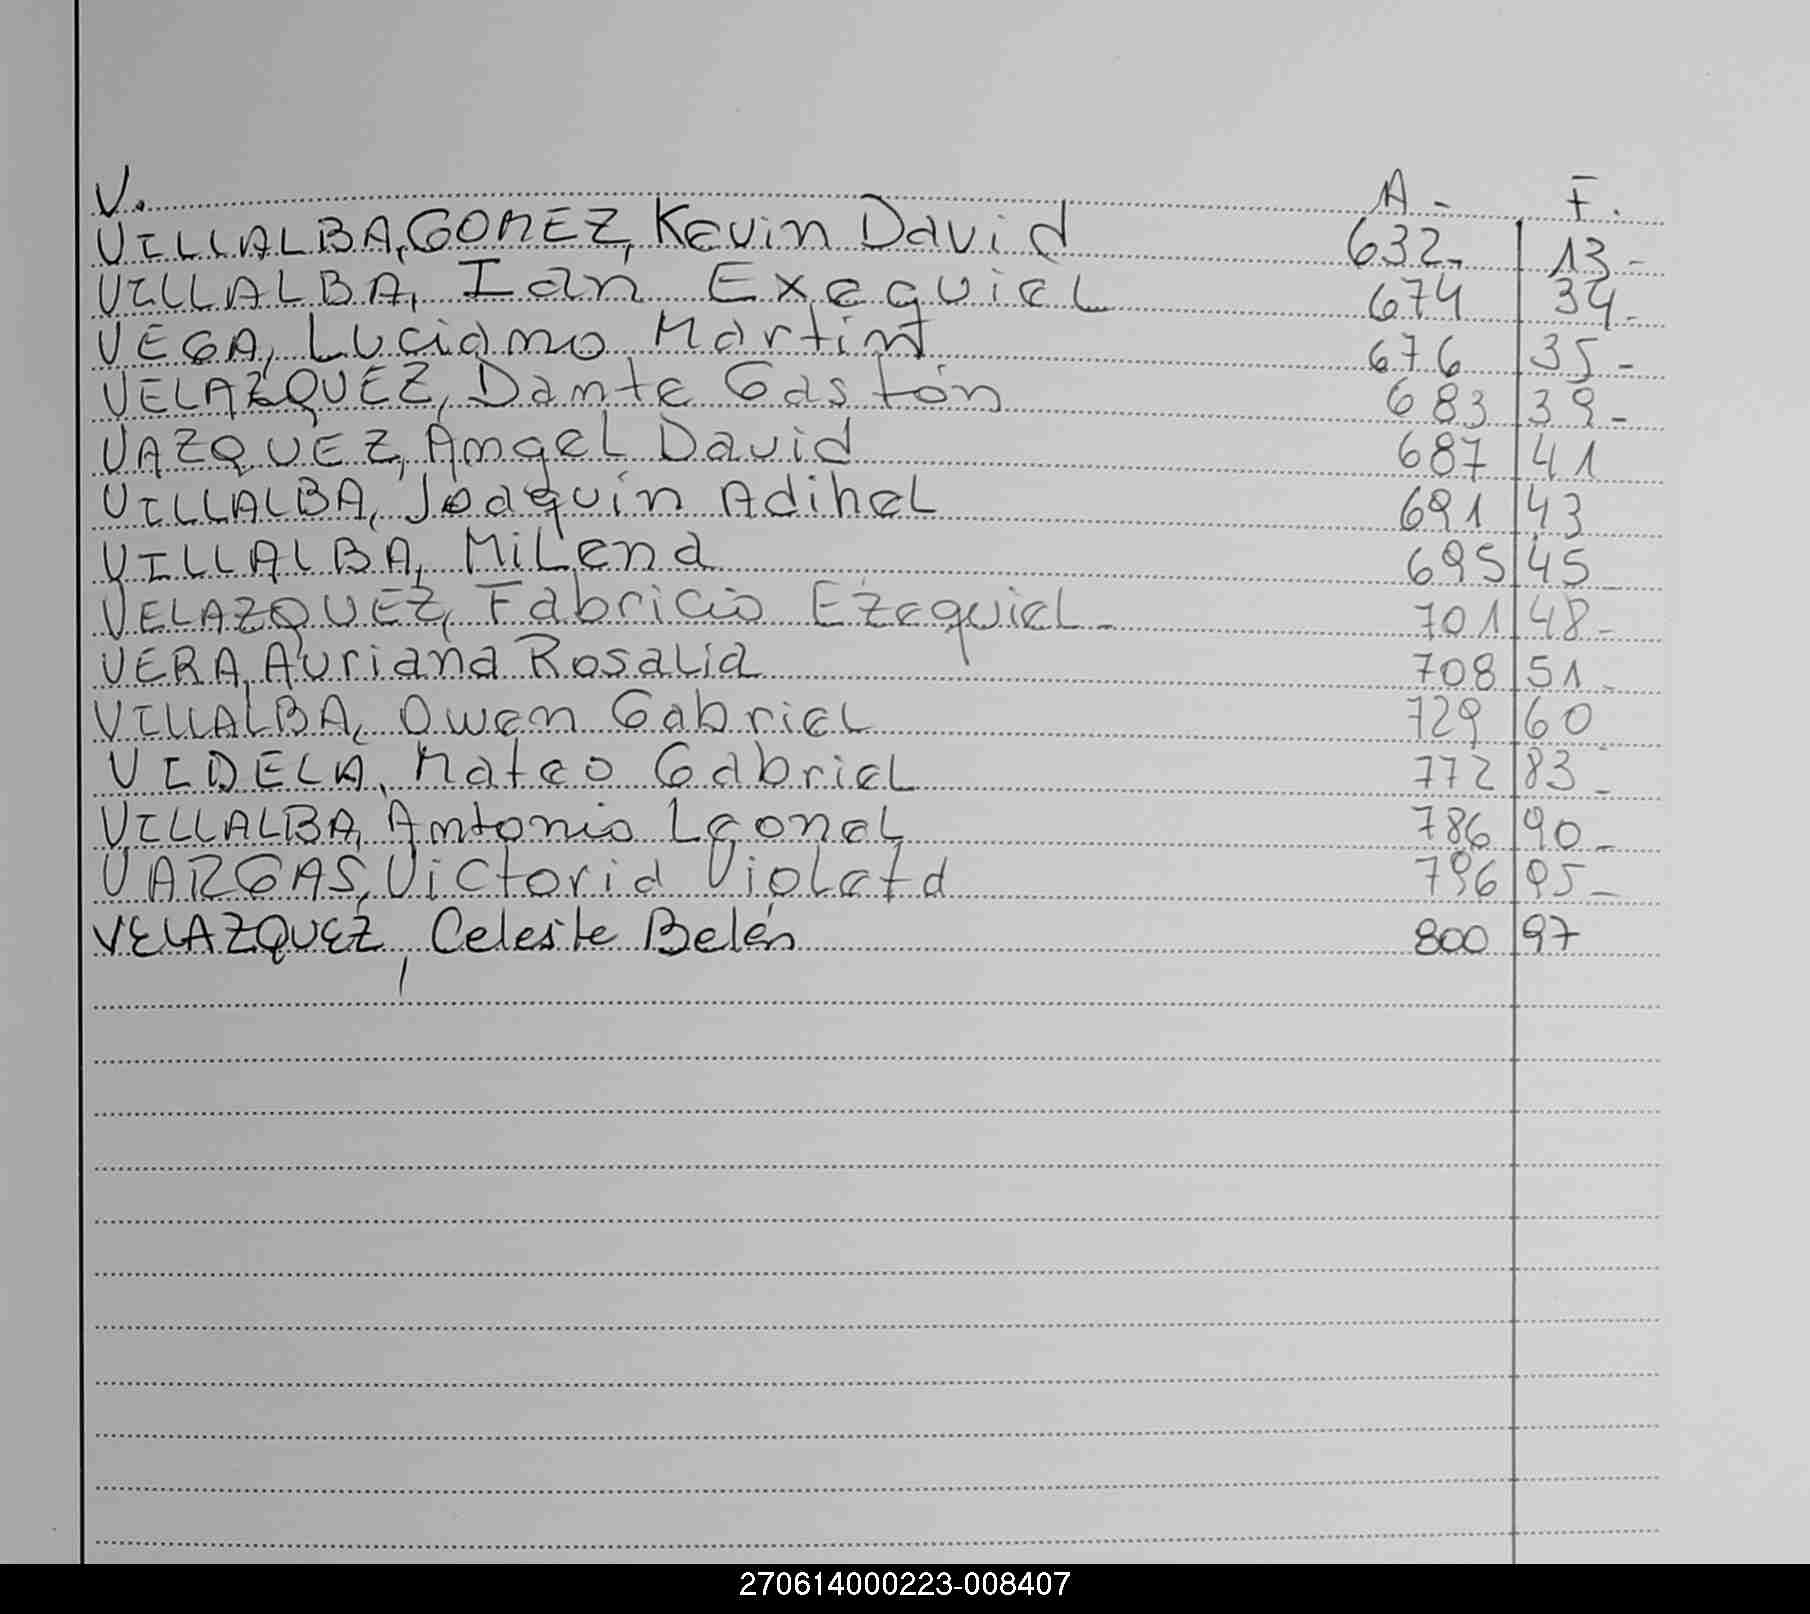 V. A- F.
VILLALBA, GOMEZ, Kevin David 632- 13-
VILLALBA, Ian Exequiel 674 34-
VEGA, Luciano Martin 676 35-
VELAZQUEZ, Dante Gastón 683 39-
VAZQUEZ, Angel David 687 41
VILLALBA, Joaquín Adihel 691 43
VILLALBA, Milena 695 45
VELAZQUEZ, Fabricio Ezequiel- 701 48-
VERA, Auriana Rosalia 708 51-
VILLALBA, Owen Gabriel 729 60
VIDELA, Mateo Gabriel 772 83-
VILLALBA, Antonio Leonel 786 90-
VARGAS, Victoria Violeta 796 95-
VELAZQUEZ, Celeste Belén 800 97
270614000223-008407